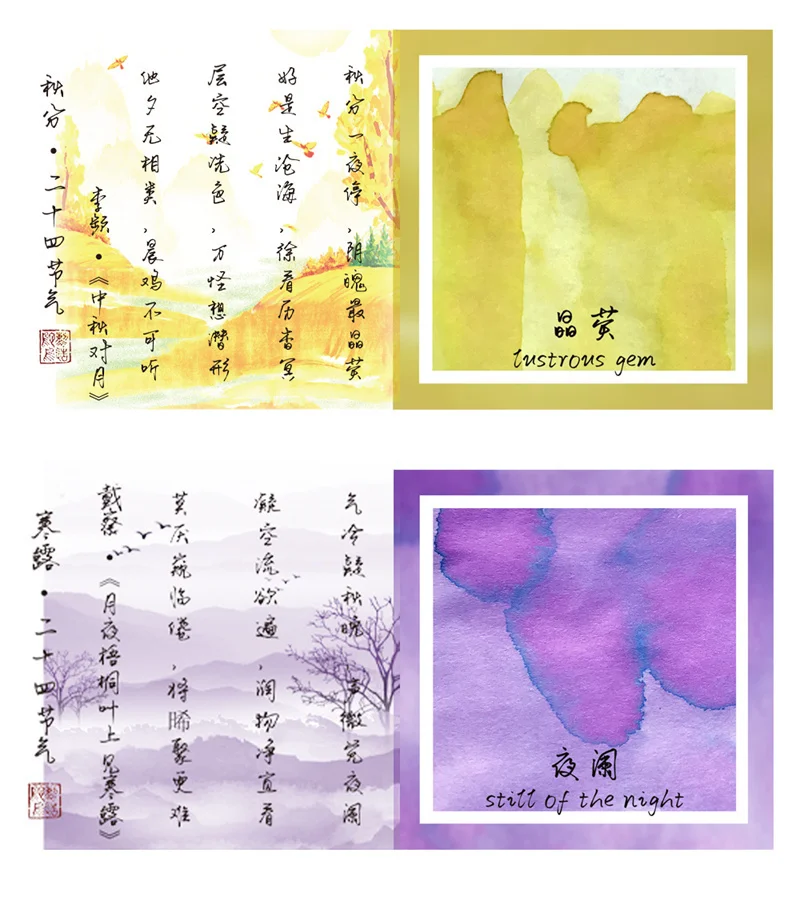 秋分一夜停，阴魄最晶荧
好是生沧海，徐看历杳冥
层空疑洗色，万怪想潜形
他夕无相类，晨鸡不可听
李频•《中秋对月》
秋分•二十四节气
晶荧
lustrous gem
气冷疑秋晚 声微觉夜阑
凝空流欲遍，润物净宜看
莫厌窥临倦，将晞聚更难
戴察•《月夜梧桐叶上见寒露》
寒露•二十四节气
夜阑
still of the night